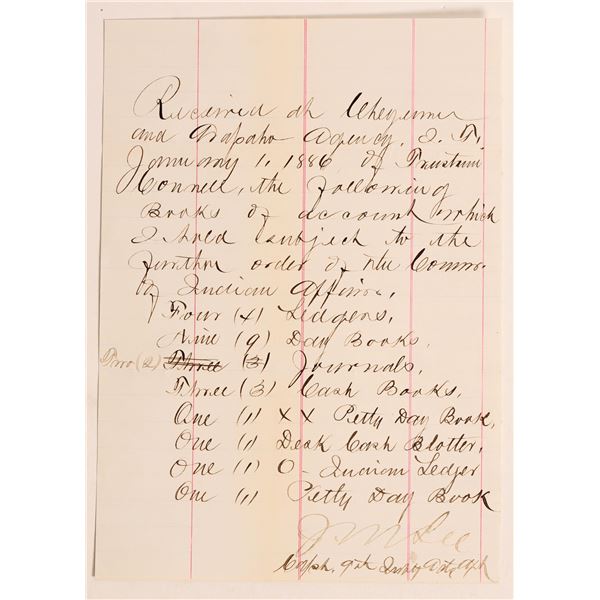 Received at Cheyenne
and Arapaho Agency, I. T,
January 1, 1886 of Tristam
Connell, the following
Books of account which
I hold subject to the
further order of the Commr.
of Indian Affairs,
Four (4) Ledgers,
Nine (9) Day Books.
Two (2) Three (3) Journals,
Three (3) Cash Books,
One (1) X X Petty Day Book,
One (1) Desk Cash Blotter,
One (1) O - Indian Ledger
One (1) Petty Day Book
J M Lee
Capt. 9th Infty